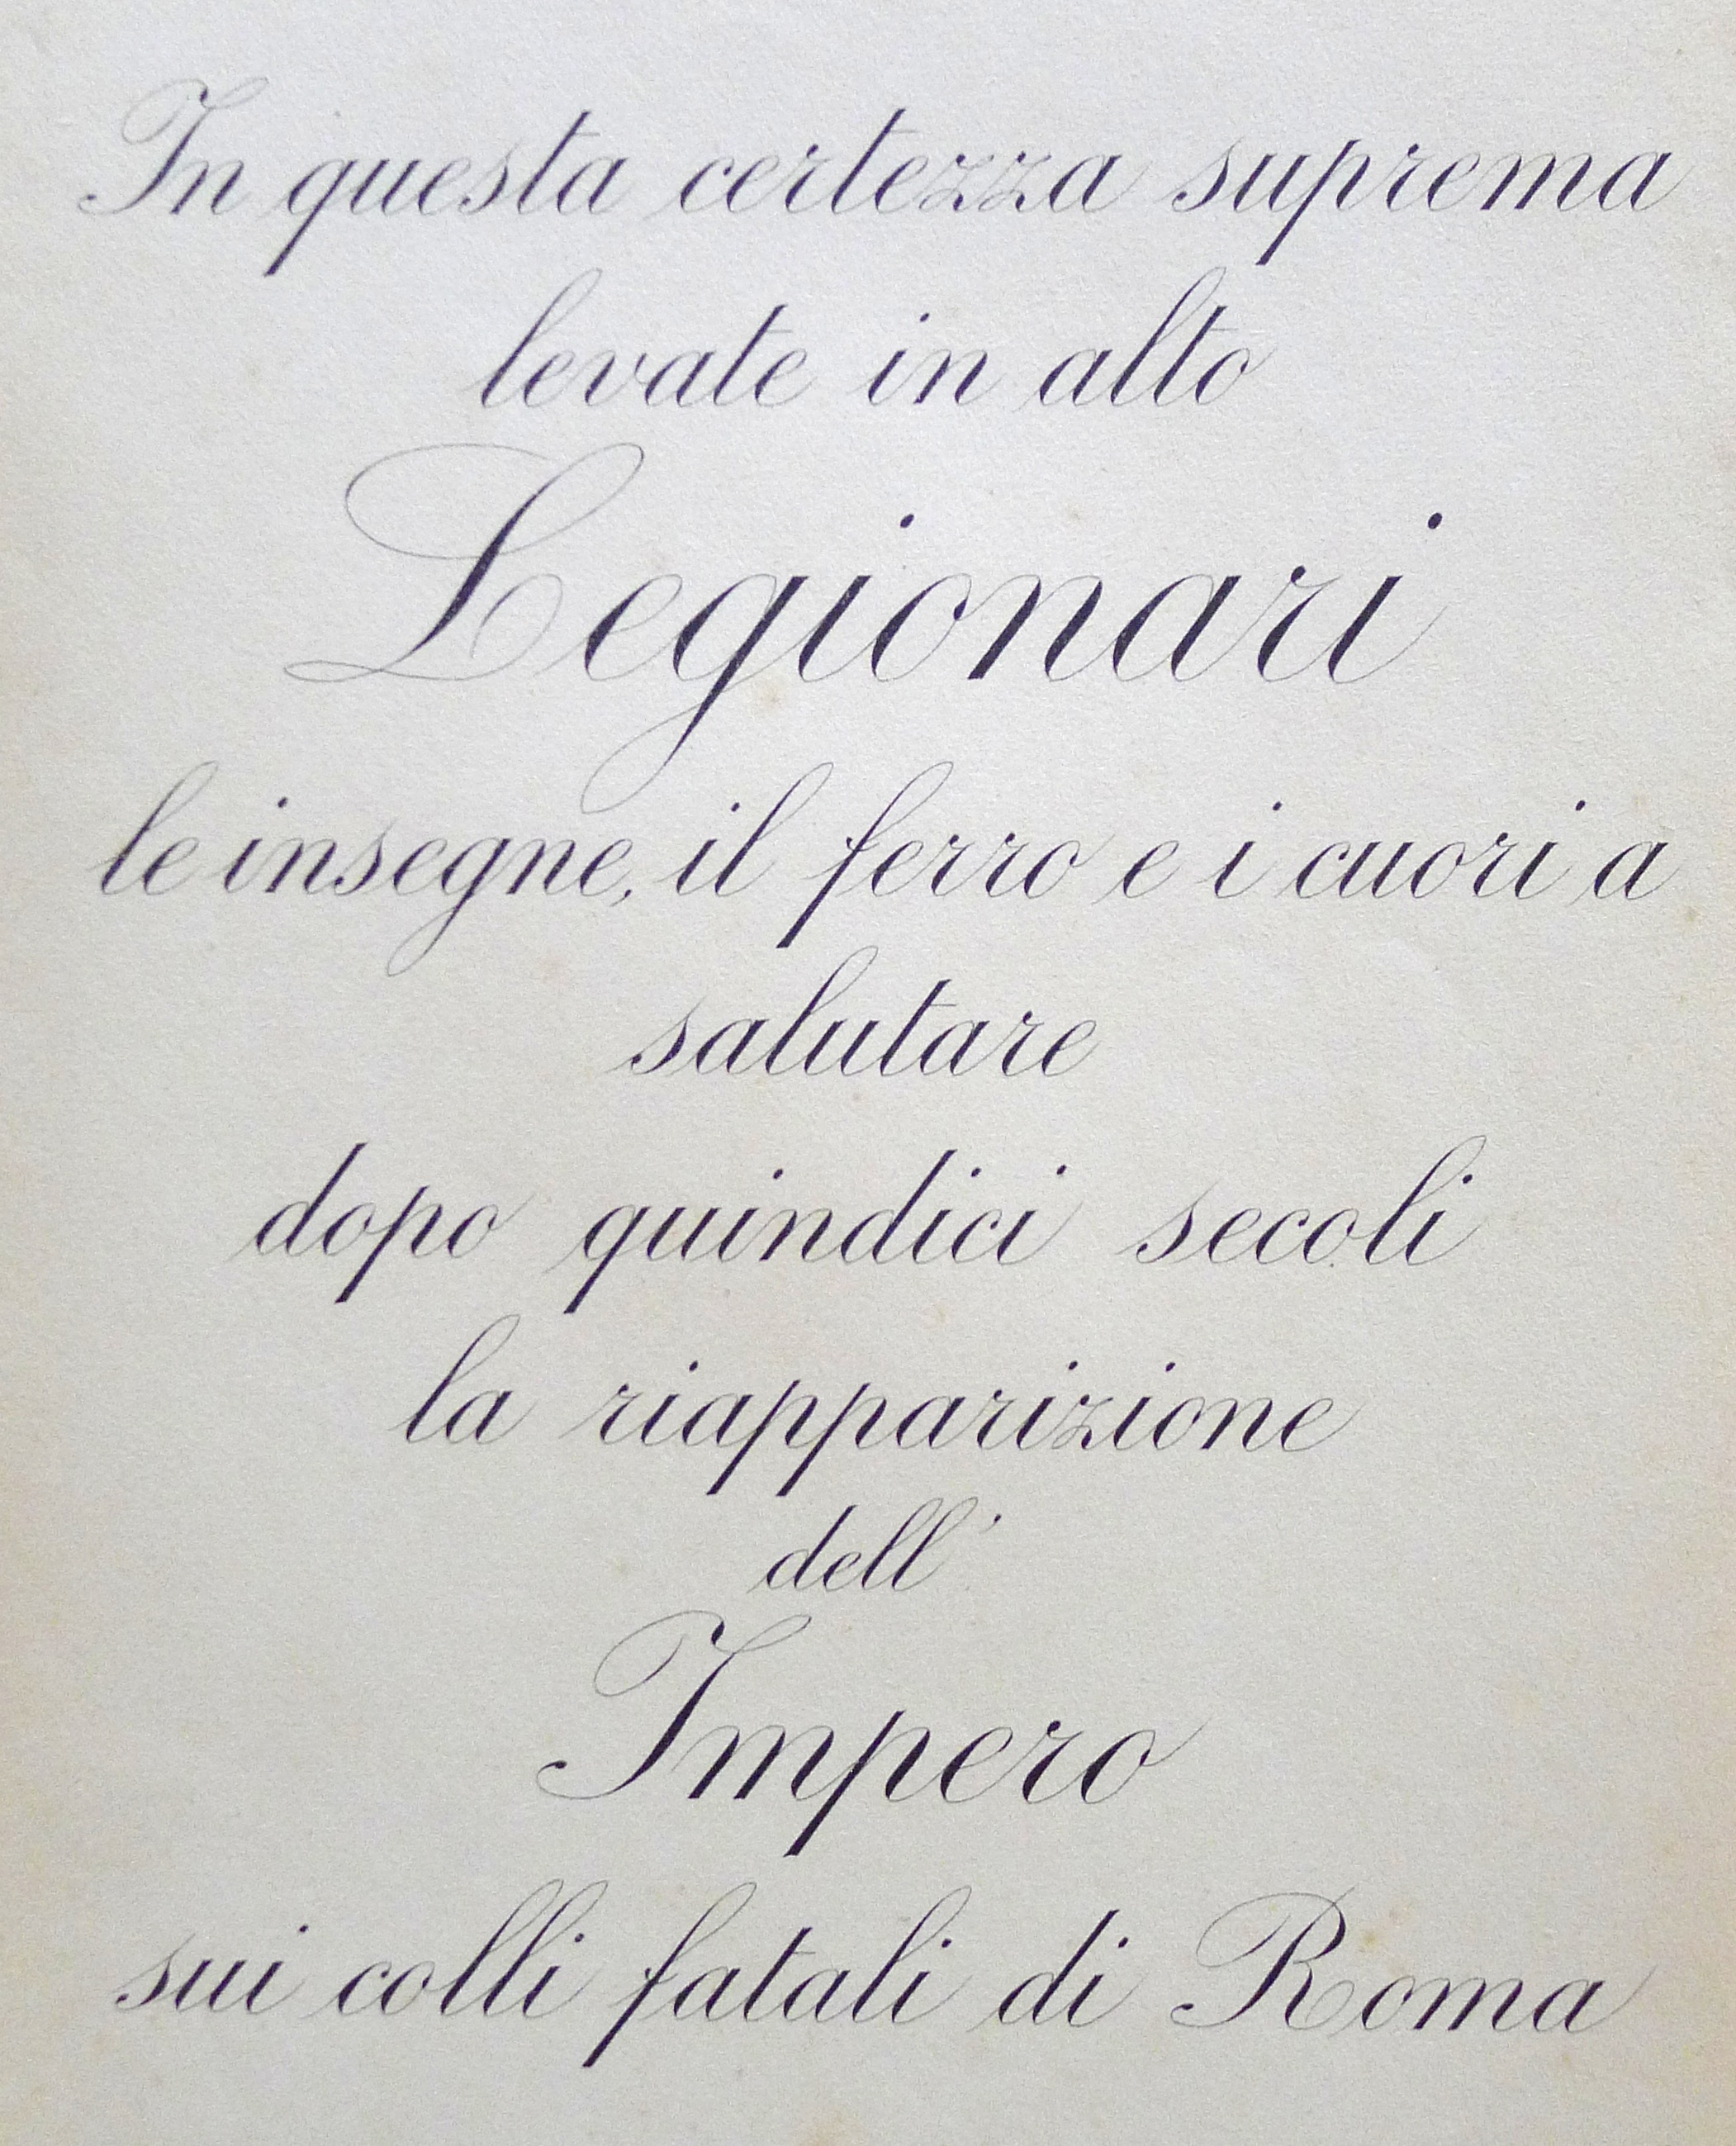 In questa certezza suprema
levate in alto
Legionari
le insegne, il ferro e i cuori a
salutare
dopo quindici secoli
la riapparizione
dell'
Impero
sui colli fatali di Roma